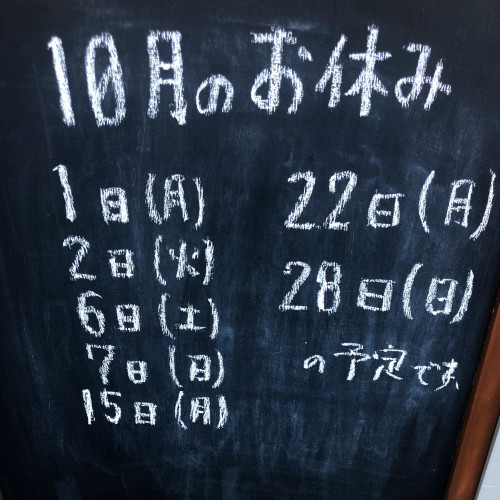 10月のお休み
1日(月)
2日(火)
6日(土)
7日(日)
15日(月)
22日(月)
28日(日)
の予定です